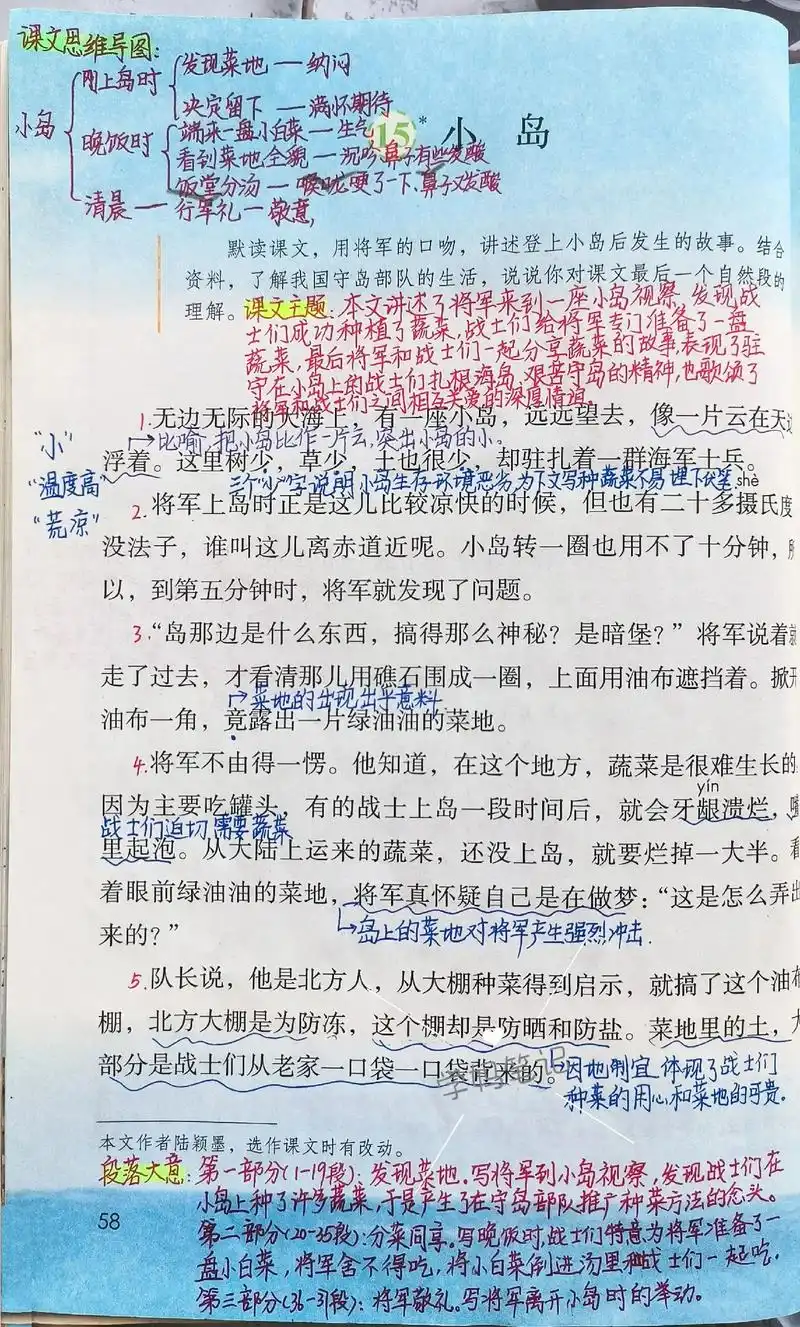 课文思维导图：
小岛
刚上岛时
发现菜地 — 纳闷
决定留下 — 满怀期待
晚饭时
端来一盘小白菜 — 生气
看到菜地全貌 — 沉吟 鼻子有些发酸
饭堂分汤 — 喉咙哽了一下、鼻子又发酸
清晨 — 行军礼 — 敬意
15* 小岛
默读课文，用将军的口吻，讲述登上小岛后发生的故事。结合
资料，了解我国守岛部队的生活，说说你对课文最后一个自然段的
理解。
课文主题：本文讲述了将军来到一座小岛视察，发现战
士们成功种植了蔬菜，战士们给将军专门准备了一盘
蔬菜，最后将军和战士们一起分享蔬菜的故事，表现了驻
守在小岛上的战士们扎根海岛、艰苦守岛的精神，也歌颂了
将军和战士们之间相互关爱的深厚情谊。
1.无边无际的大海上，有一座小岛，远远望去，像一片云在天边
"小"
→比喻，把小岛比作一片云，突出小岛的小。
浮着。这里树少，草少，土也很少，却驻扎着一群海军士兵。
"温度高"
三个"少"字说明小岛生存环境恶劣，为下文写种蔬菜不易埋下伏笔
shè
"荒凉"
2.将军上岛时正是这儿比较凉快的时候，但也有二十多摄氏度
没法子，谁叫这儿离赤道近呢。小岛转一圈也用不了十分钟，所
以，到第五分钟时，将军就发现了问题。
3.“岛那边是什么东西，搞得那么神秘？是暗堡？”将军说着就
走了过去，才看清那儿用礁石围成一圈，上面用油布遮挡着。掀开
→菜地的出现出乎意料
油布一角，竟露出一片绿油油的菜地。
4.将军不由得一愣。他知道，在这个地方，蔬菜是很难生长的
yín
因为主要吃罐头，有的战士上岛一段时间后，就会牙龈溃烂，嘴
战士们迫切需要蔬菜
里起泡。从大陆上运来的蔬菜，还没上岛，就要烂掉一大半。看
着眼前绿油油的菜地，将军真怀疑自己是在做梦：“这是怎么弄出
来的？”
→岛上的菜地对将军产生强烈冲击.
5.队长说，他是北方人，从大棚种菜得到启示，就搞了这个油布
棚，北方大棚是为防冻，这个棚却是防晒和防盐。菜地里的土，大
部分是战士们从老家一口袋一口袋背来的。
因地制宜，体现了战士们
种菜的用心和菜地的可贵。
学梅笔记
本文作者陆颖墨，选作课文时有改动。
段落大意：第一部分(1-19段)：发现菜地。写将军到小岛视察，发现战士们在
小岛上种了许多蔬菜，于是产生了在守岛部队推广种菜方法的念头。
58
第二部分(20-35段)：分菜同享。写晚饭时，战士们特意为将军准备了一
盘小白菜，将军舍不得吃，将小白菜倒进汤里和战士们一起吃。
第三部分(36-37段)：将军敬礼。写将军离开小岛时的举动。